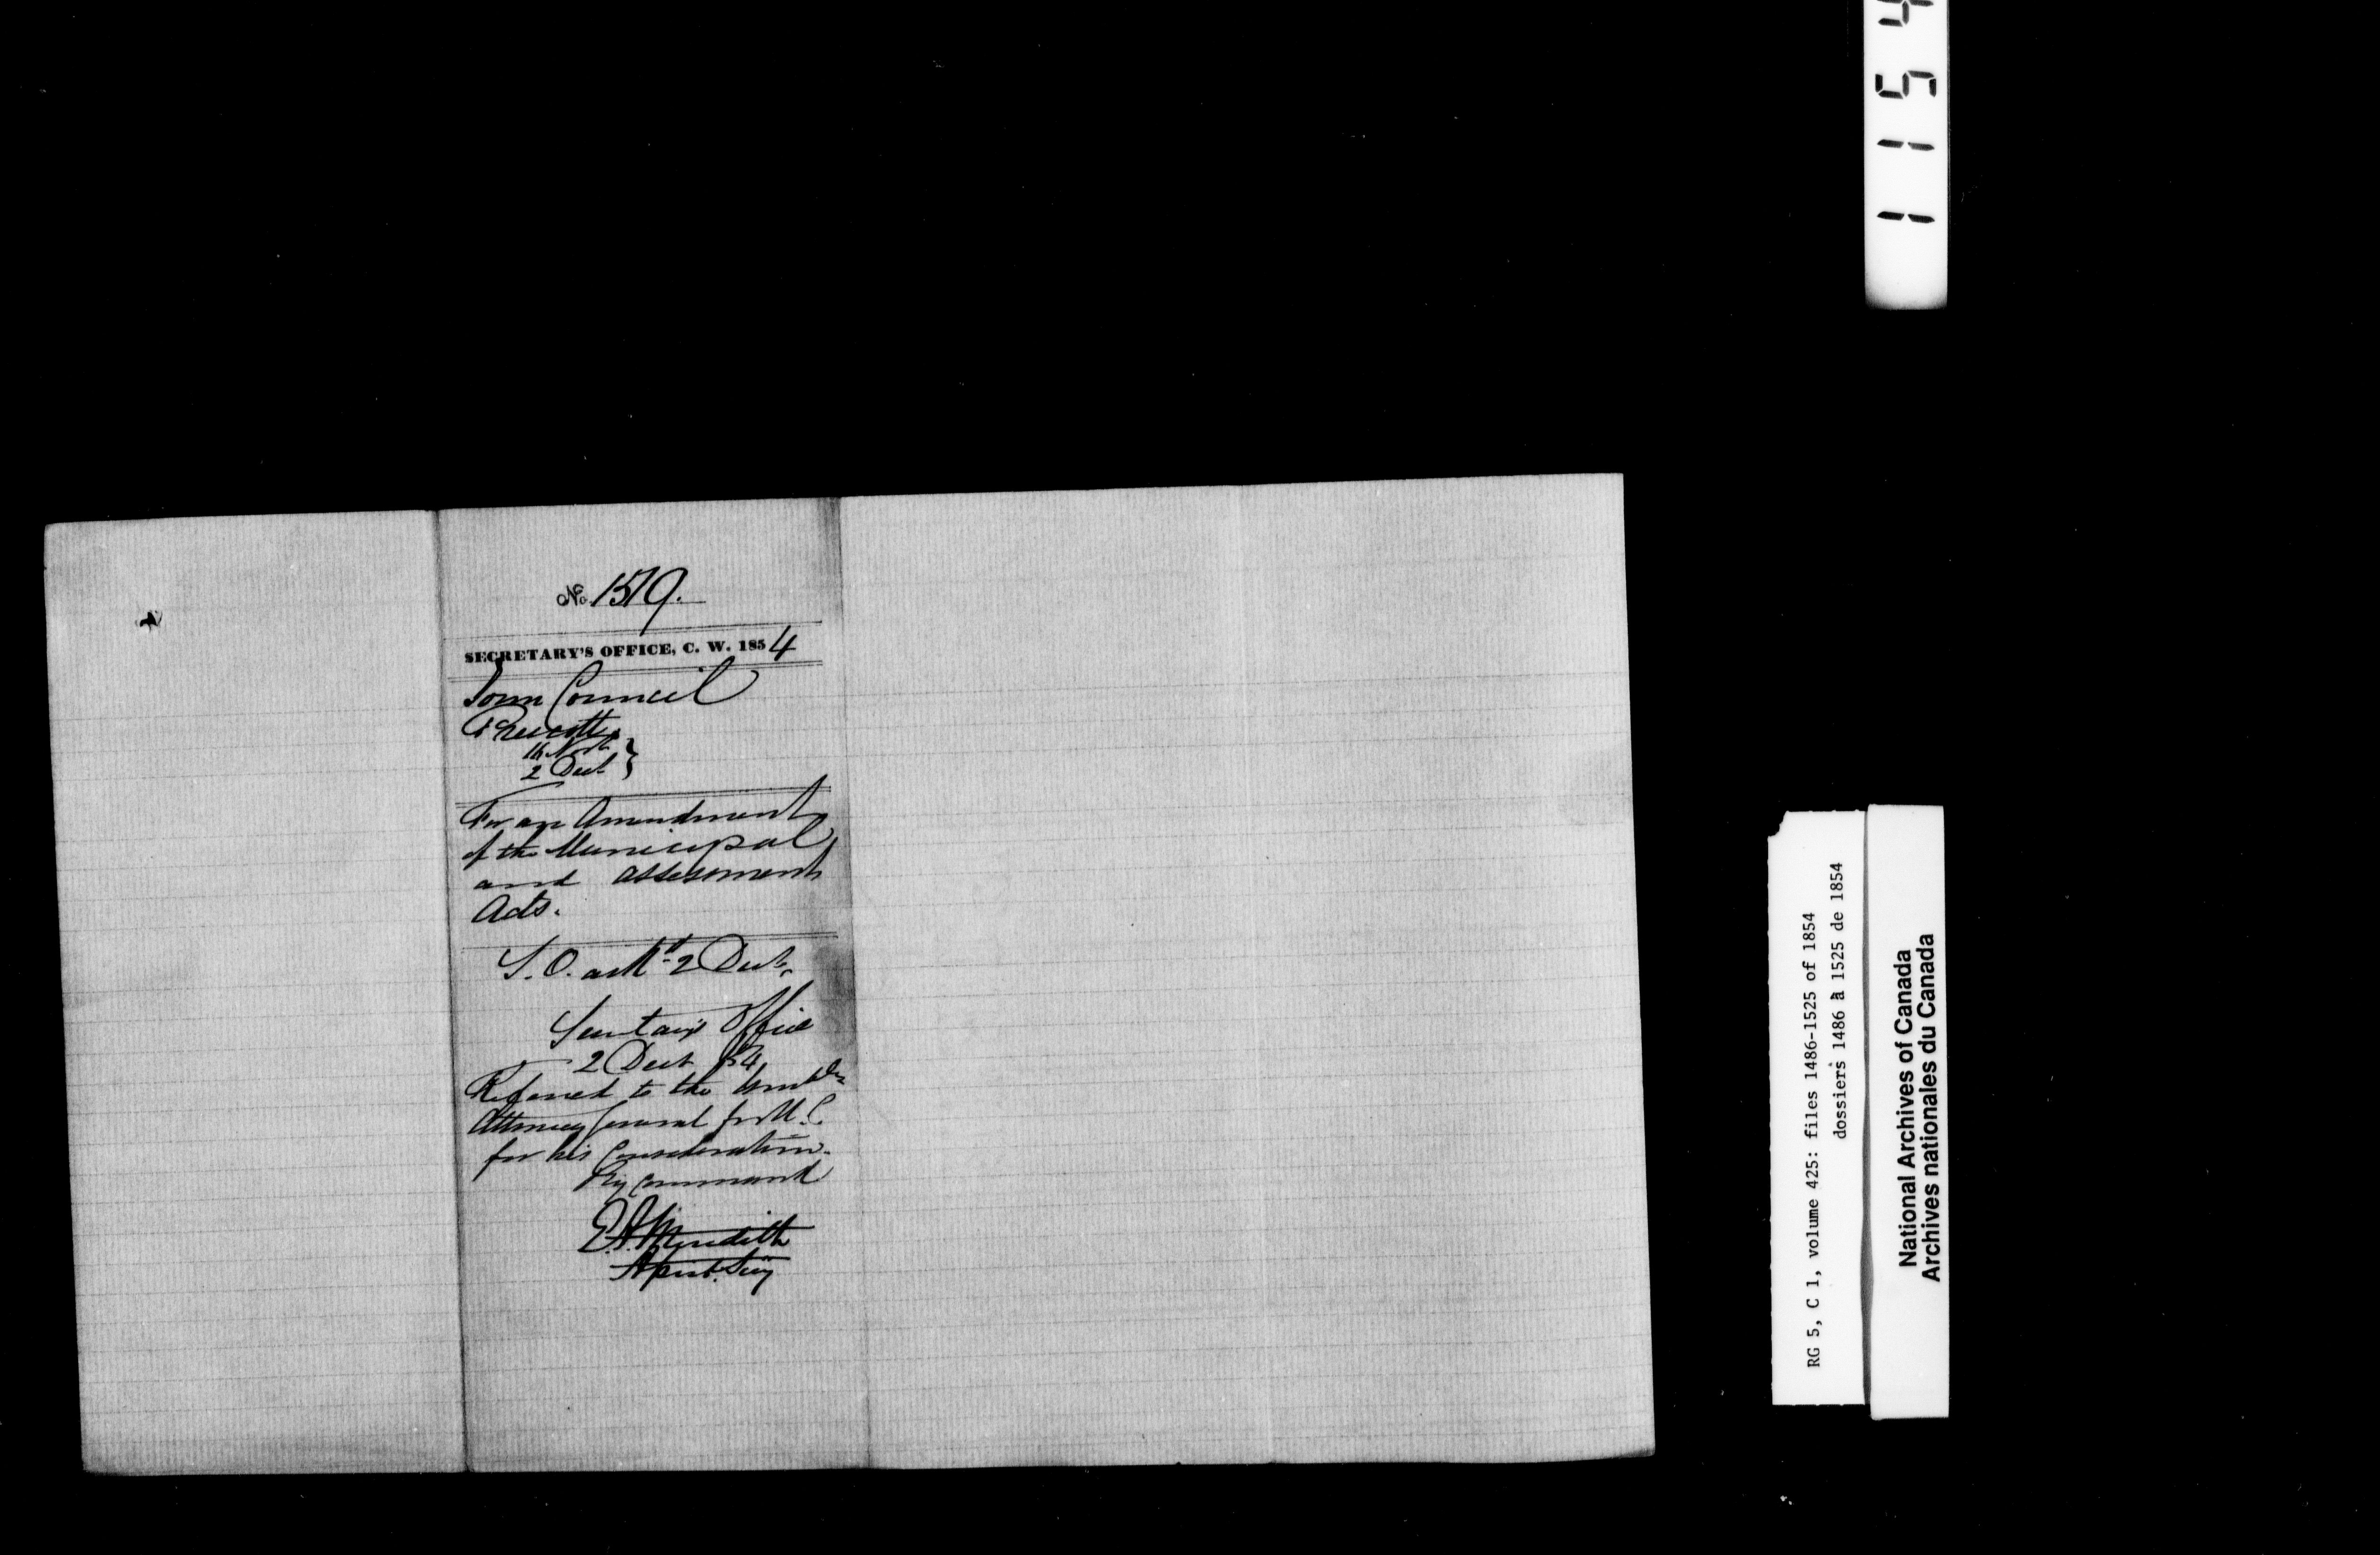 No. 1519.
SECRETARY'S OFFICE, C. W. 1854
Town Council
Prescott
16 Novr }
2 Decr }
For an Amendment
of the Municipal
and Assessment
Acts.
S.O. ackd 2 Decr
Secretary's Office
2 Decr 54
Referred to the Honble
Attorney General for U.C.
for his Consideration.
By Command
E.A. Meredith
Assist. Secy
1154
RG 5, C 1, volume 425: files 1486-1525 of 1854
dossiers 1486 à 1525 de 1854
National Archives of Canada
Archives nationales du Canada